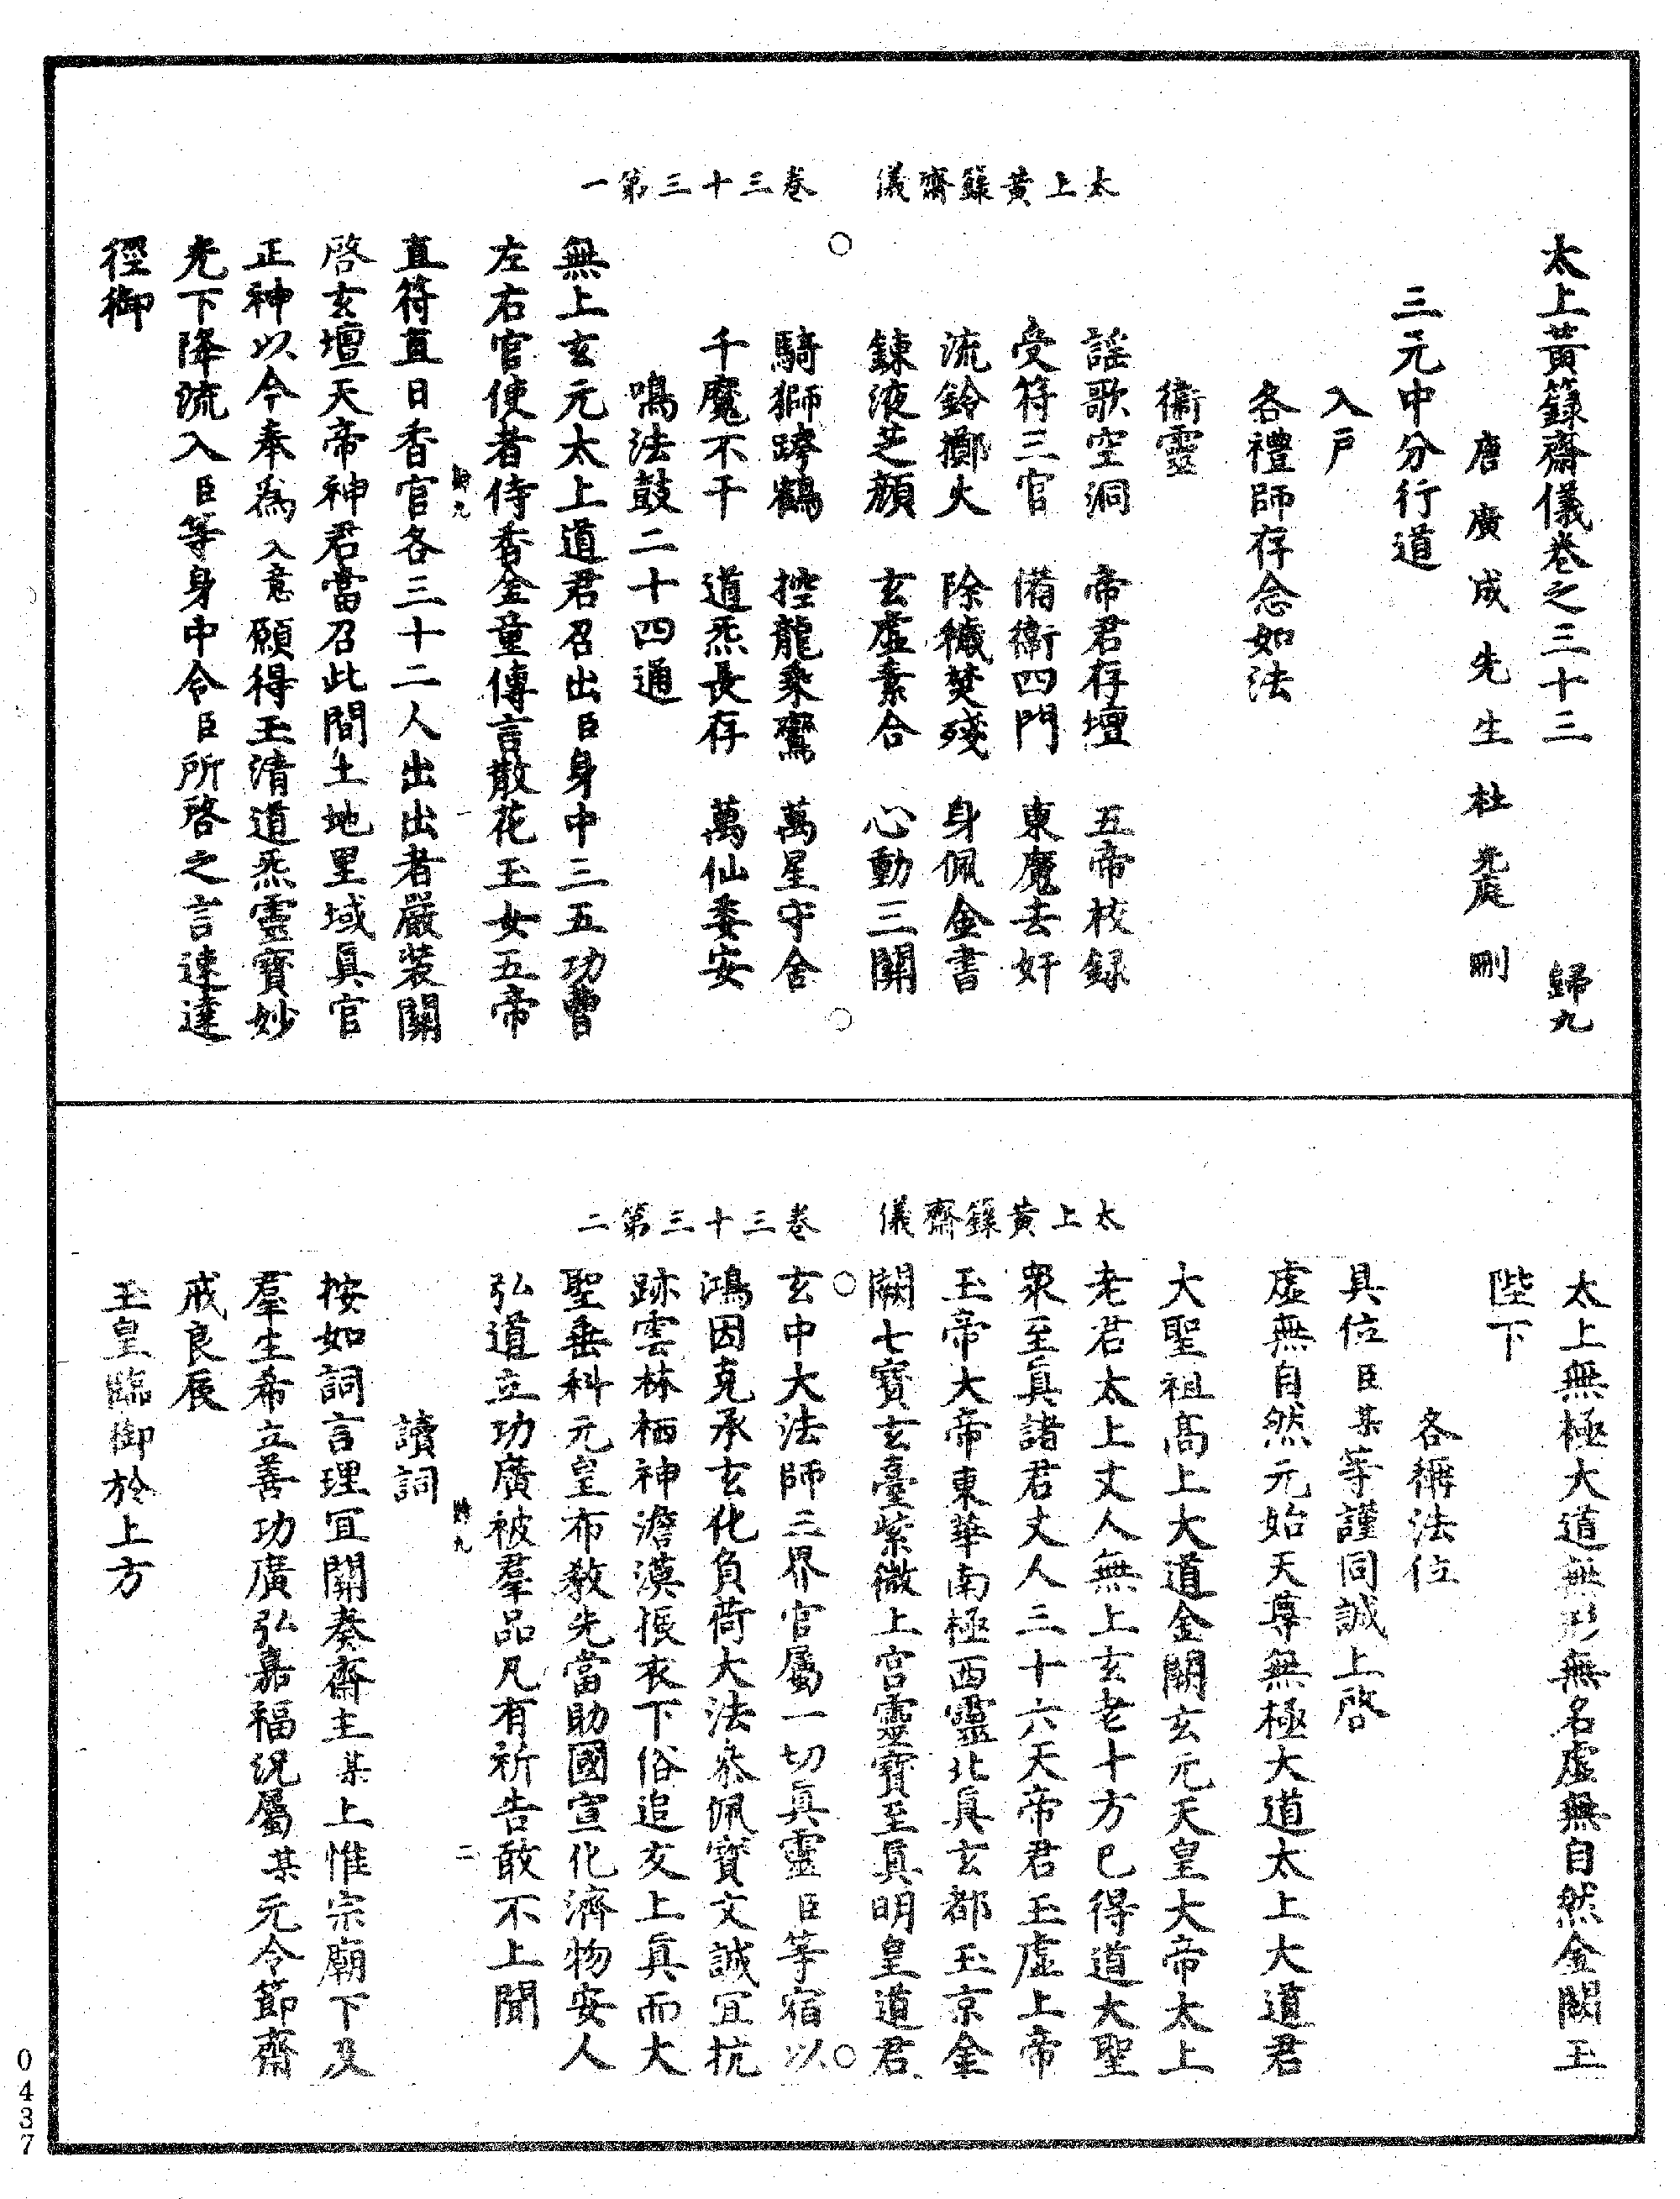 太上黃籙齋儀　卷三十三第一
太上黃籙齋儀卷之三十三　歸九
唐廣成先生杜光庭刪
三元中分行道
入戶
各禮師存念如法
衞靈
謡歌空洞　帝君存壇　五帝校録
受符三官　備衞四門　東魔去奸
流鈴擲火　除穢焚殘　身佩金書
鍊液芝顏　玄虛素合　心動三關
騎獅跨鶴　控龍乘鸞　萬星守舍
千魔不干　道炁長存　萬仙委安
鳴法鼓二十四通
無上玄元太上道君召出臣身中三五功曹
左右官使者侍香金童傳言散花玉女五帝
直符直日香官各三十二人出出者嚴裝關
啓玄壇天帝神君當召此間土地里域眞官
正神以今奉爲入意願得王清道炁靈寶妙
光下降流入臣等身中令臣所啓之言速達
徑御
太上黃籙齋儀　卷三十三第二
太上無極大道無形無名虛無自然金闕玉
陛下
各稱法位
具位臣某等謹同誠上啓
虛無自然元始天尊無極大道太上大道君
大聖祖高上大道金闕玄元天皇大帝太上
老君太上丈人無上玄老十方已得道大聖
衆至眞諸君丈人三十六天帝君玉虛上帝
玉帝大帝東華南極西靈北眞玄都玉京金
闕七寶玄臺紫微上宮靈寶至眞明皇道君
玄中大法師三界官屬一切眞靈臣等宿以
鴻因克承玄化負荷大法叅佩寶文誠冝抗
跡雲林栖神澹漠振衣下俗追交上眞而大
聖垂科元皇布敎先當助國宣化濟物安人
弘道立功廣被羣品凡有祈告敢不上聞
讀詞
按如詞言理冝關奏齋主某上惟宗廟下及
羣生希立善功廣弘嘉福況屬某元令節齋
戒良辰
玉皇臨御於上方
0437